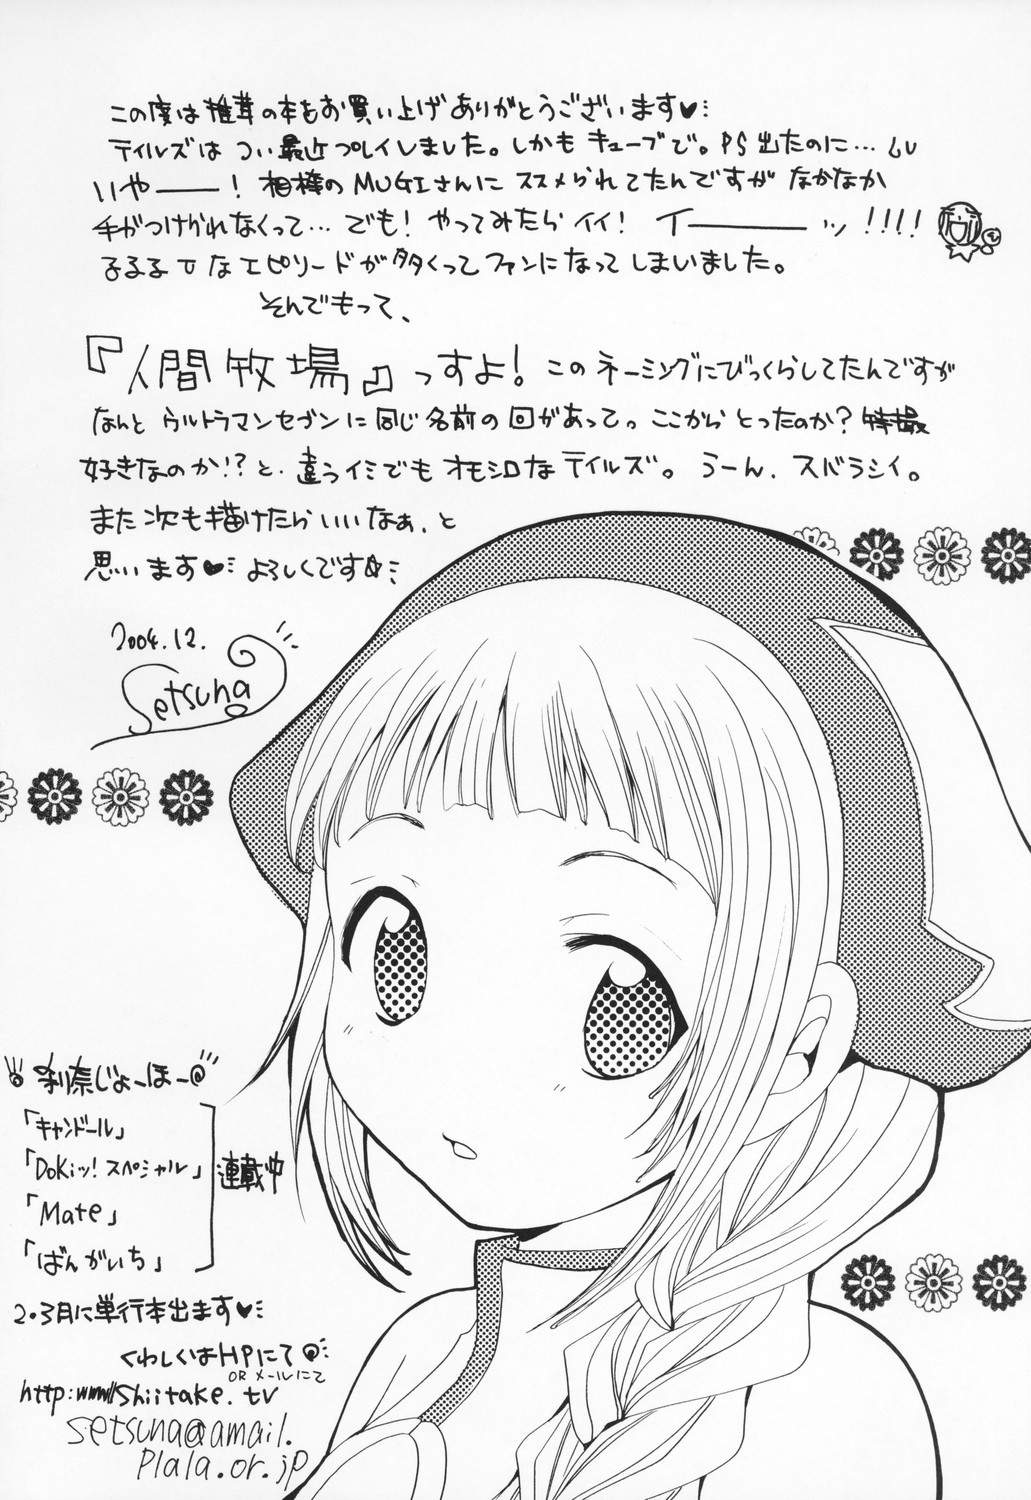 この度は椎茸の本をお買い上げありがとうございます♥
テイルズは つい最近プレイしました。しかもキューブで。PS出たのに…
いやーー！相棒のMUGIさんに ススメられてたんですが なかなか
手がつけられなくって…でも！やってみたら イイ！ イーーーッ!!!!
るるる な エピソードが多くって ファンになって しまいました。
そんでもって、
『人間牧場』っすよ！このネーミングにびっくらしてたんですが
なんと ウルトラマンセブンに同じ名前の回があって。ここから とったのか？特撮
好きなのか!?と、違うイミでも オモシロな テイルズ。うーん、スバラシイ。
また次も描けたらいいなぁ、と
思います♥よろしくです
2004.12.
Setsuna
刹奈じょーほー@
「キャンドール」
「DoKiッ!スペシャル」
「Mate」
「ばんがいち」
連載中
2.3月に単行本出ます♥
くわしくはHPにて
OR メールにて
http:www//shiitake.tv
setsuna@amail.
plala.or.jp